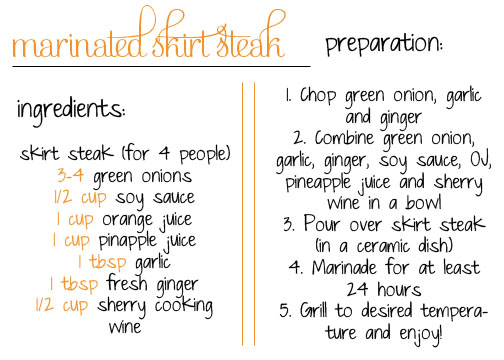 marinated skirt steak
ingredients:
skirt steak (for 4 people)
3-4 green onions
1/2 cup soy sauce
1 cup orange juice
1 cup pinapple juice
1 tbsp garlic
1 tbsp fresh ginger
1/2 cup sherry cooking
wine
preparation:
1. Chop green onion, garlic
and ginger
2. Combine green onion,
garlic, ginger, soy sauce, OJ,
pineapple juice and sherry
wine in a bowl
3. Pour over skirt steak
(in a ceramic dish)
4. Marinade for at least
24 hours
5. Grill to desired tempera-
ture and enjoy!